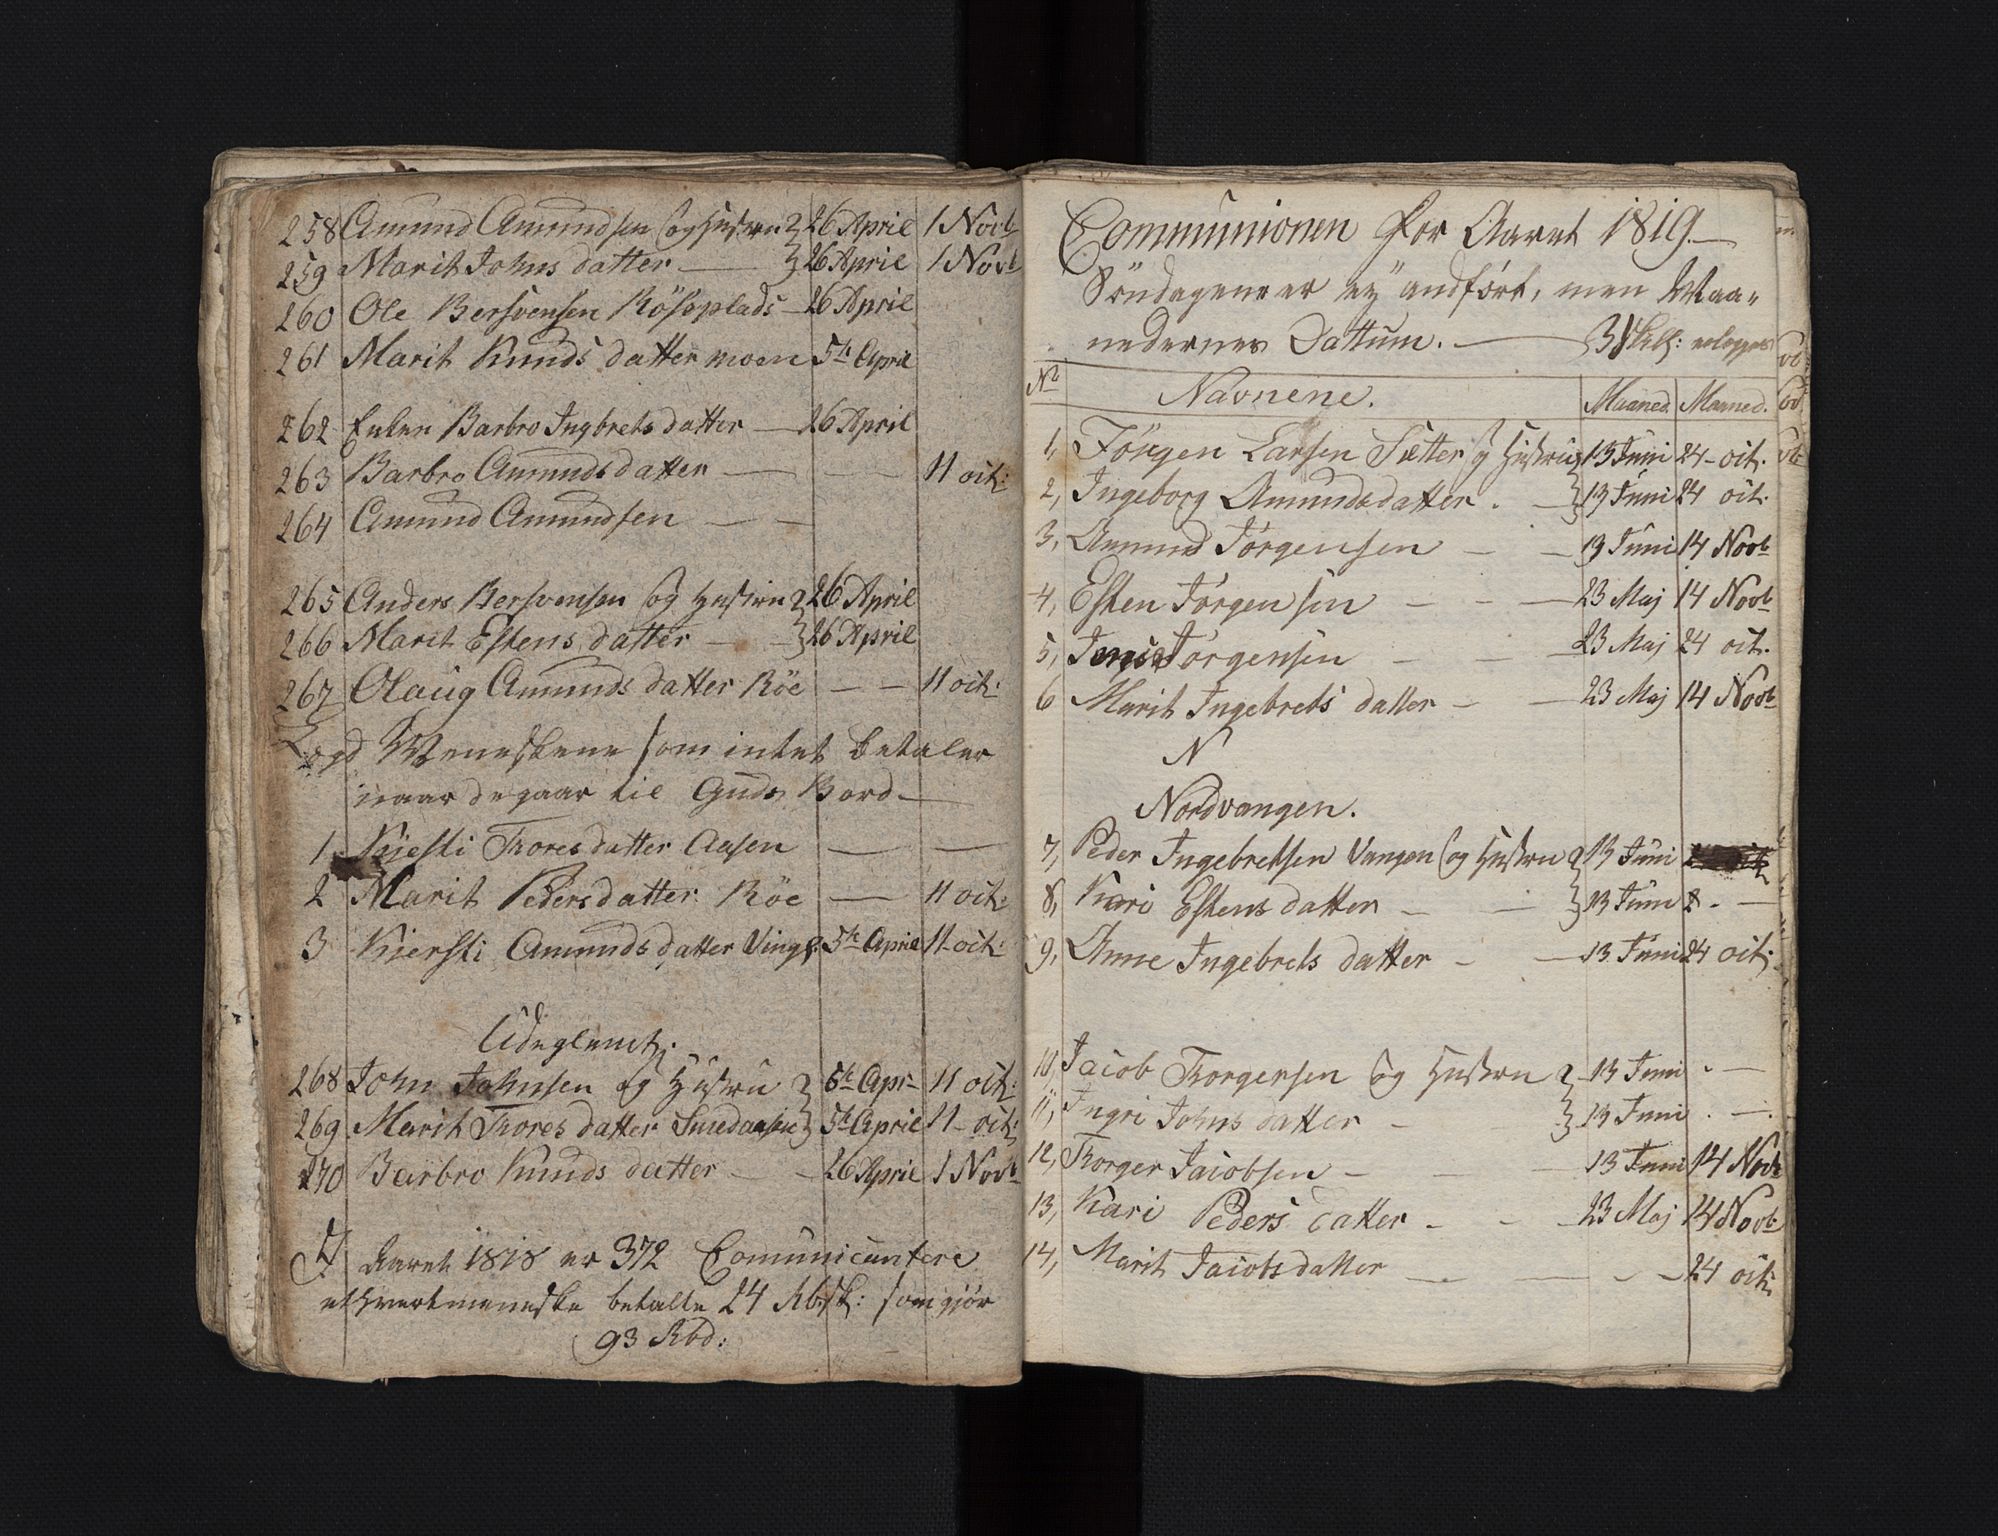 258 Amund Amundsen og Hustru 26 April 1 Novb
259 Marit Johns datter — 26 April 1 Novb
260 Ole Bersvensen Rösplads — 26 April
261 Marit Knuds datter moen 5te April
262 Enken Barbro Ingbrets datter — 26 April
263 Barbro Amunds datter — — 11 oct:
264 Amund Amundsen — —
265 Anders Bersvensen og Hustru 26 April
266 Marit Estens datter — — 26 April
267 Olaug Amunds datter Röe — — 11 oct:
Legd Meneskene som intet betaler
naar de gaar til Guds Bord —
1 Kiesti Thoresdatter Aasen — —
2 Marit Pedersdatter Röe — 11 oct:
3 Kiersti Amunds datter Vingl: 5te April 11 oct:
Udeglemt.
268 John Johnsen og Hustru 5te Apr: 11 oct:
269 Marit Thores datter 5te April 11 oct:
270 Barbro Knuds datter — — 26 April 1 Novb
I Aaret 1818 er 372 Comunicantere
ethvert meneske betalte 24 Rbsk: som gjör
93 Rbd:
Communionen for Aaret 1819 —
Söndagene er ey andfört, men Maa=
nedernes Dattum. —
No Navnene. Maaned. Maaned.
1, Jörgen Larsen Sætter og Hustru 13 Juni 24 oct.
2, Ingeborg Amundsdatter. — 13 Juni 24 oct.
3, Amund Jörgensen — — 13 Juni 14 Novb
4, Esten Jörgensen — — — 23 Maj 14 Novb
5, Jörgensen — — — 23 Maj 24 oct.
6 Marit Ingebrets datter — — 23 Maj 14 Novb
N
Nordvangen.
7, Peder Ingebretsen Vangen og Hustru 13 Juni
8, Kari Estens datter — — 13 Juni
9, Anne Ingebrets datter — — 13 Juni 24 oct.
10, Jacob Thorgersen og Hustru 13 Juni . —
11, Ingri Johns datter — 13 Juni . —
12, Thorger Jacobsen — — 13 Juni 14 Novb
13, Kari Peders datter — — — 23 Maj 14 Novb
14, Marit Jacobsdatter — — — — 24 oct: